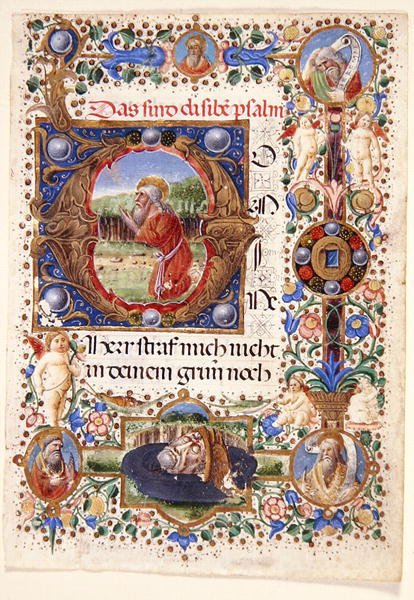 Das sind di sibē psalm
O
M
I
NE
herr straf mich nicht
in deinem grim̄ noch